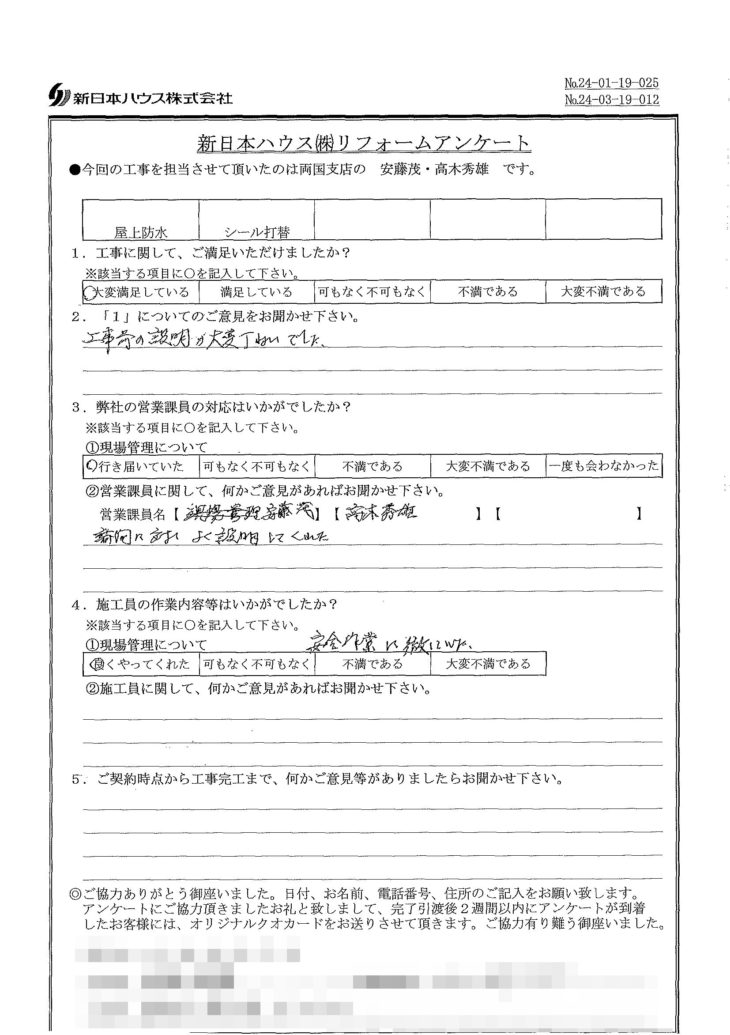 新日本ハウス株式会社
No.24-01-19-025
No.24-03-19-012
新日本ハウス㈱リフォームアンケート
●今回の工事を担当させて頂いたのは両国支店の 安藤茂・高木秀雄 です。
屋上防水 シール打替
1．工事に関して、ご満足いただけましたか？
※該当する項目に○を記入して下さい。
○大変満足している 満足している 可もなく不可もなく 不満である 大変不満である
2．「1」についてのご意見をお聞かせ下さい。
工事等の説明が大変丁ねいでした、
3．弊社の営業課員の対応はいかがでしたか？
※該当する項目に○を記入して下さい。
①現場管理について
○行き届いていた 可もなく不可もなく 不満である 大変不満である 一度も会わなかった
②営業課員に関して、何かご意見があればお聞かせ下さい。
営業課員名【 安藤茂】【 高木秀雄 】【 】
よく説明してくれた
4．施工員の作業内容等はいかがでしたか？
※該当する項目に○を記入して下さい。
①現場管理について 安全作業に徹していた、
良くやってくれた 可もなく不可もなく 不満である 大変不満である
②施工員に関して、何かご意見があればお聞かせ下さい。
5．ご契約時点から工事完工まで、何かご意見等がありましたらお聞かせ下さい。
◎ご協力ありがとう御座いました。日付、お名前、電話番号、住所のご記入をお願い致します。
アンケートにご協力頂きましたお礼と致しまして、完了引渡後２週間以内にアンケートが到着
したお客様には、オリジナルクオカードをお送りさせて頂きます。ご協力有り難う御座いました。